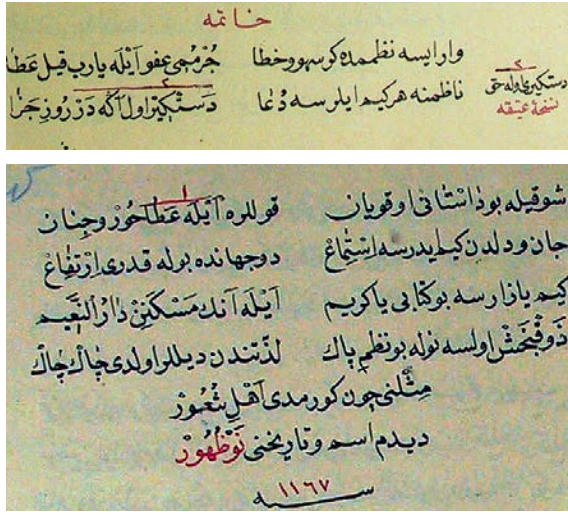 خاتمه
وار ايسه نظممده كر سهو و خطا    جُرْممى عفو آيله يارب قيل عَطا
ناظمنه هر كيم ايلر سه دُعا    دَسْتكير اول آكه دَرْ رُوزِ جَزا
٢
دستكيرى اوله حق
نسخهٔ عتيقه
شوقيله بو داستانى اوقويان    قوللره آيله عَطا حُورْ و جِنان
جان و دلدن كيم ايدرسه اِسْتِماعْ    دو جهانده بوله قدرى اِرْتِفاعْ
كيم يازارسه بو كتابى يا كريم    آيله آنك مَسْكَنِنْ دارُ النَّعيم
ذَوقْبَخشْ اولسه نوله بو نظمِ پاك    لذّتندن ديللر اولدى چاكْ چاكْ
مِثْلنى چون كورمدى اَهْلِ شُعُورْ
ديدم اسم و تاريخنى نَوْ ظُهُورْ
سنه ١١٦٧